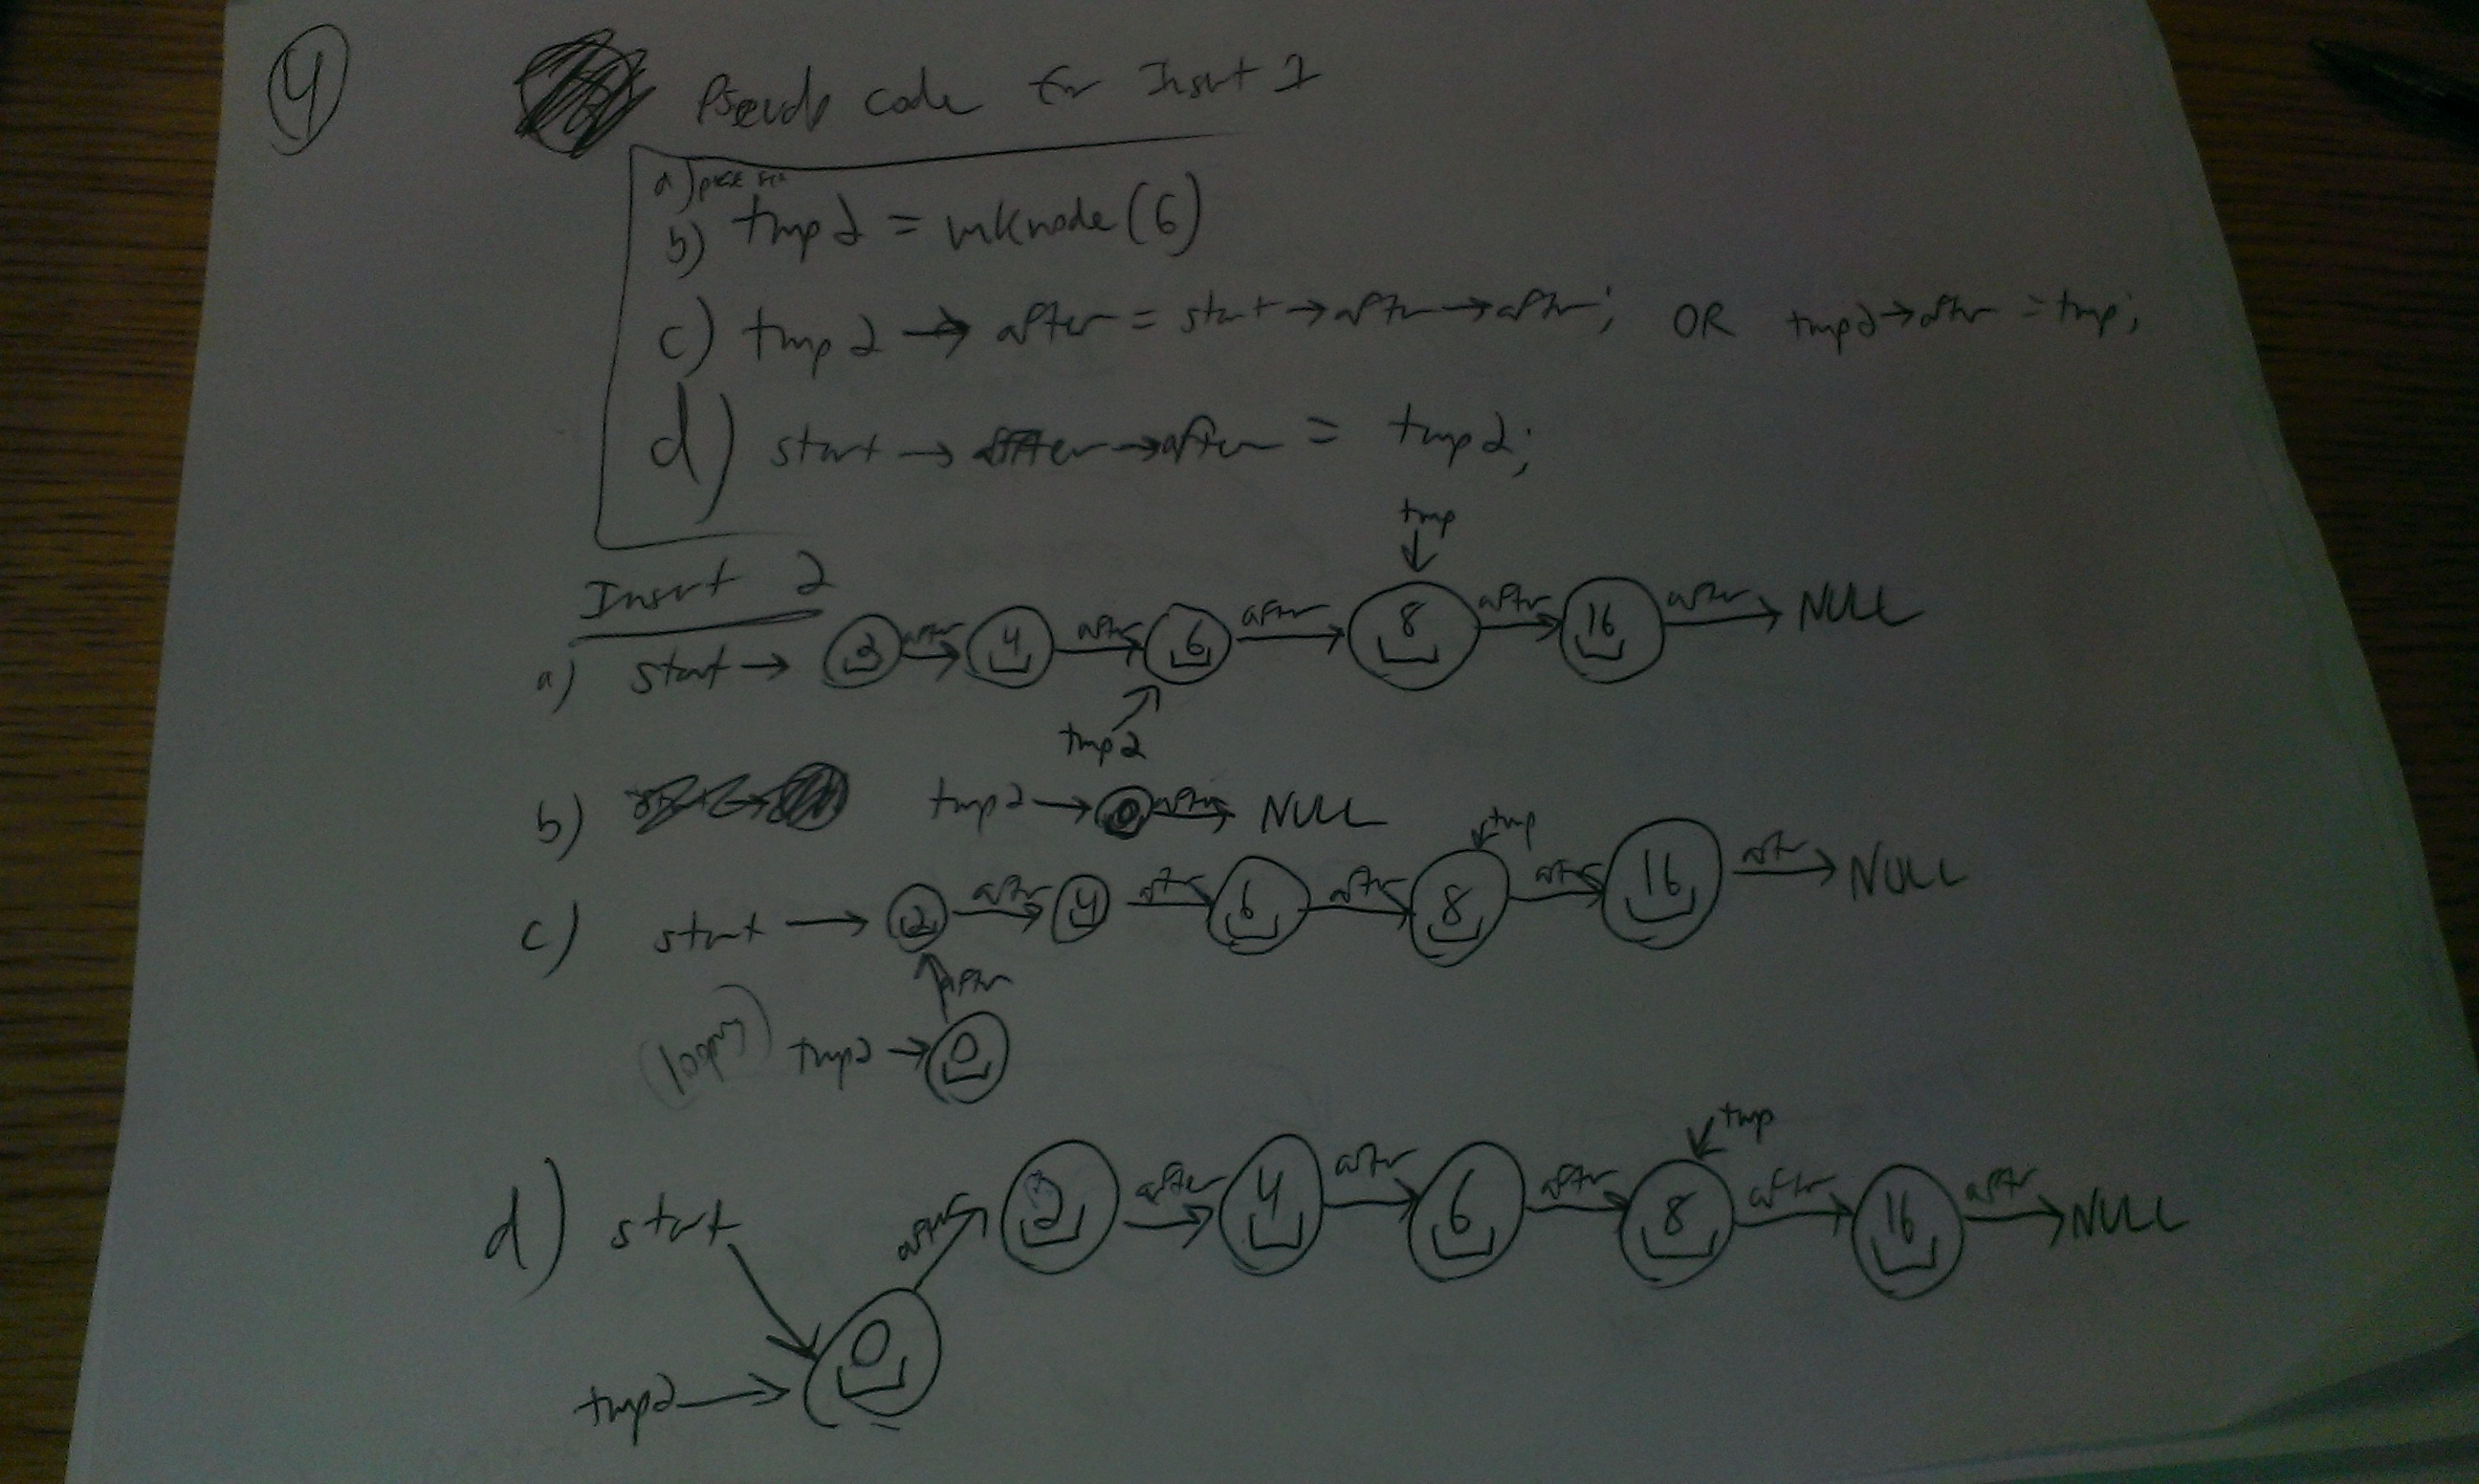 4
Pseudo code for Insert 1
a)
b) tmp2 = mknode(6)
c) tmp2 → after = start → after → after; OR tmp2 → after = tmp;
d) start → after → after = tmp2;
tmp
Insert 2
a) start → 3 after 4 after 6 after 8 after 16 after NULL
tmp2
b) tmp2 → 0 after NULL
tmp
c) start → 2 after 4 after 6 after 8 after 16 after NULL
after
tmp2 → 0
tmp
d) start after 2 after 4 after 6 after 8 after 16 after NULL
0
tmp2